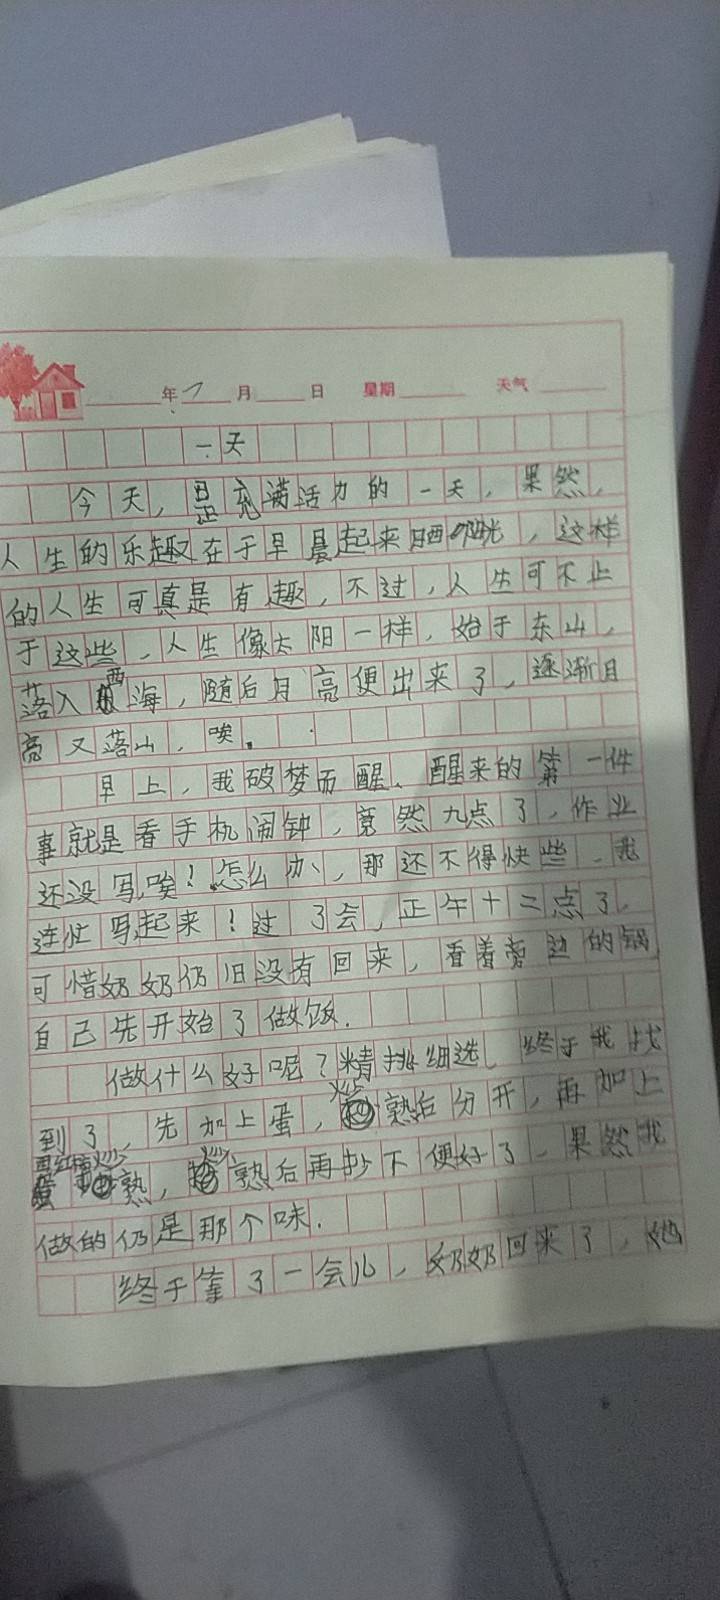 年 7 月 日 星期 天气
一天
今天，是充满活力的一天，果然，
人生的乐趣在于早晨起来晒阳光，这样
的人生可真是有趣，不过，人生可不止
于这些，人生像太阳一样，始于东山，
落入西海，随后月亮便出来了，逐渐月
亮又落山，唉。
早上，我破梦而醒、醒来的第一件
事就是看手机闹钟，竟然九点了，作业
还没写，唉！怎么办，那还不得快些，我
连忙写起来！过了会，正午十二点了，
可惜奶奶仍旧没有回来，看着旁边的锅
自己先开始了做饭．
做什么好呢？精挑细选，终于我找
到了，先加上蛋，炒熟后分开，再加上
炒熟，炒熟后再抄下便好了，果然我
做的仍是那个味．
终于等了一会儿，奶奶回来了，她